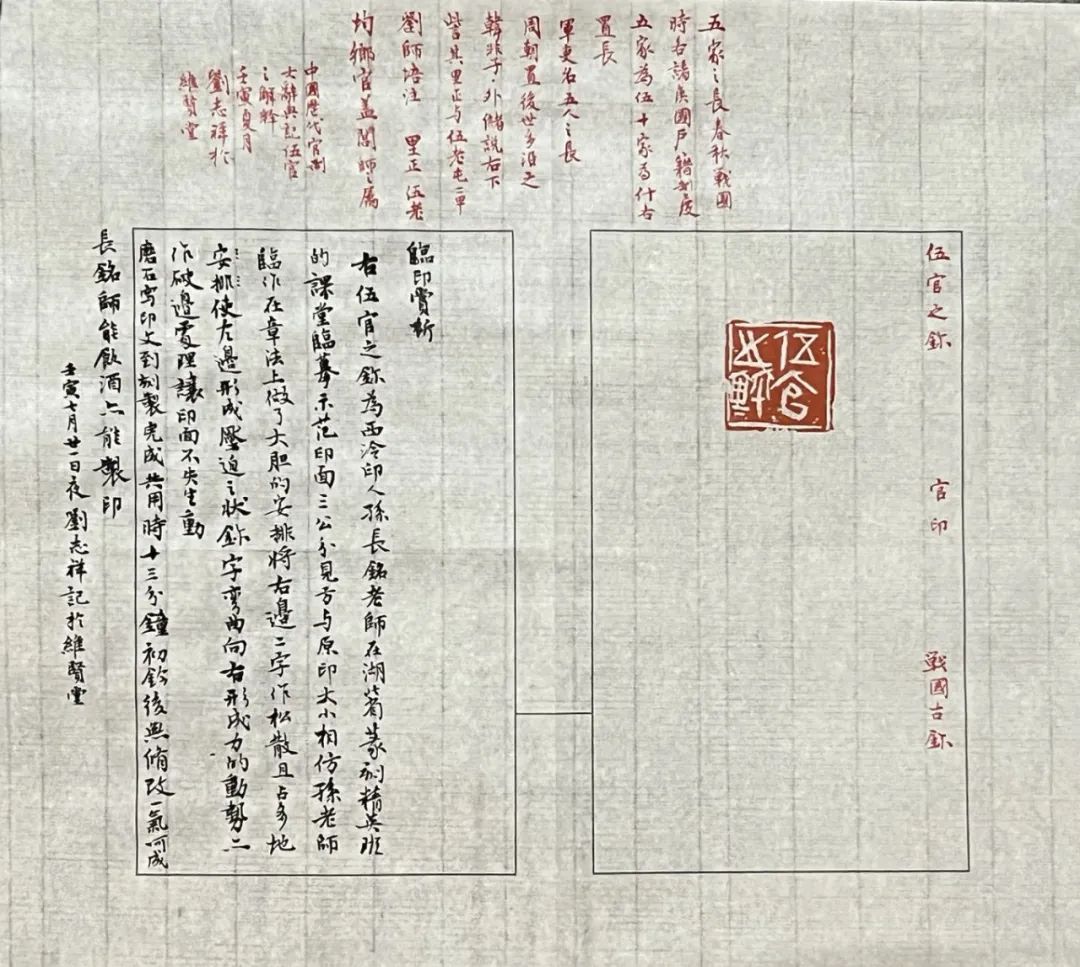 五家之長春秋戰國
時右諸侯國戶籍制度
五家為伍十家為什右
置長
軍吏名五人之長
周朝置後世多沿之
韓非子·外儲說右下
訾其里正与伍老屯二甲
劉師培注 里正伍老
均鄉官盖閭師之屬
中國歷代官制
大辭典記伍官
之解释
壬寅夏月
劉志祥於
維賢堂
伍官之鉨 官印 戰國古鉨
伍官之鉨
臨印賞析
右伍官之鉨為西泠印人孫長銘老師在湖筍篆刻精英班
的課堂臨摹示范印面三公分見方与原印大小相仿孫老師
臨作在章法上做了大胆的安排將右邊二字作松散且占多地
安排使左邊形成壓迫之狀鉨字彎曲向右形成力的動勢二
作破邊處理讓印面不失生動
磨石寫印文到刻製完成共用時十三分鐘初鈐後無脩改一氣呵成
長銘師能飲酒亠能製印
壬寅七月廿一日夜劉志祥記於維賢堂